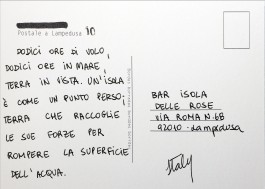 Postale a Lampedusa 10
DODICI ORE DI VOLO,
DODICI ORE IN MARE,
TERRA IN VISTA. UN'ISOLA
È COME UN PUNTO PERSO,
TERRA CHE RACCOGLIE
LE SUE FORZE PER
ROMPERE LA SUPERFICIE
DELL'ACQUA.
BAR ISOLA
DELLE ROSE
VIA ROMA N. 68
92010 - Lampedusa
Italy